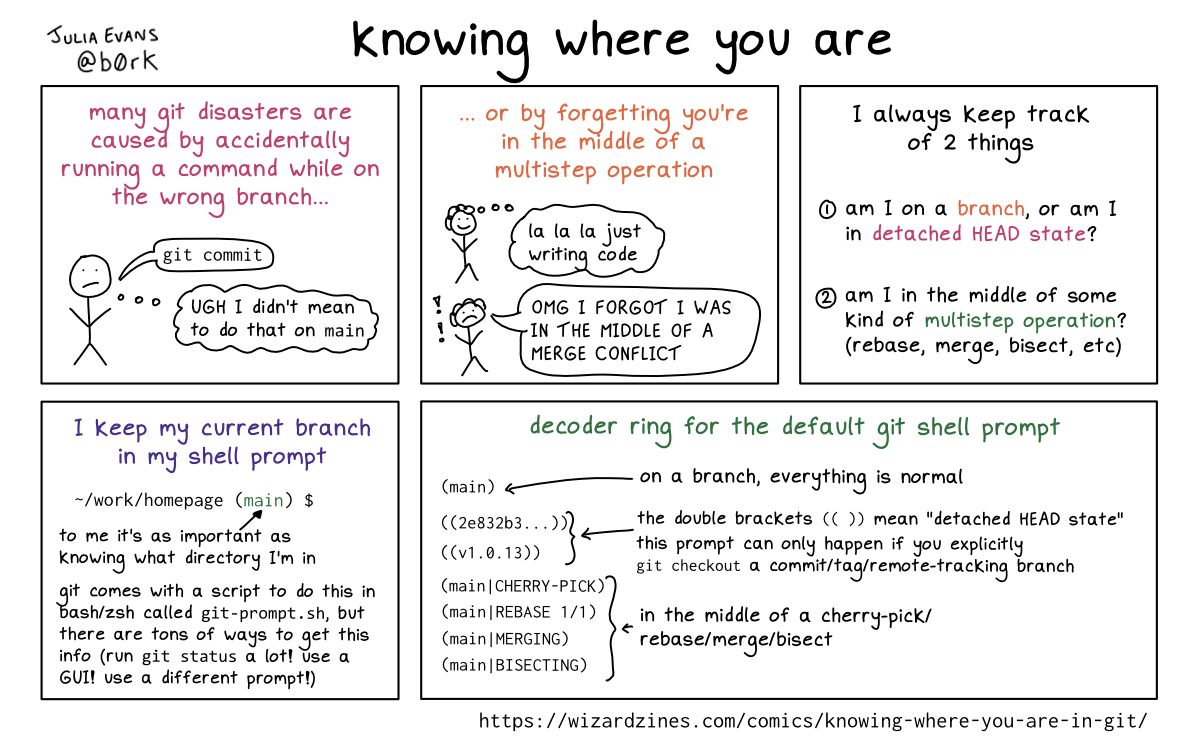 JULIA EVANS
@b0rk
knowing where you are
many git disasters are
caused by accidentally
running a command while on
the wrong branch...
git commit
UGH I didn't mean
to do that on main
... or by forgetting you're
in the middle of a
multistep operation
la la la just
writing code
!
!
OMG I FORGOT I WAS
IN THE MIDDLE OF A
MERGE CONFLICT
I always keep track
of 2 things
① am I on a branch, or am I
in detached HEAD state?
② am I in the middle of some
kind of multistep operation?
(rebase, merge, bisect, etc)
I keep my current branch
in my shell prompt
~/work/homepage (main) $
to me it's as important as
knowing what directory I'm in
git comes with a script to do this in
bash/zsh called git-prompt.sh, but
there are tons of ways to get this
info (run git status a lot! use a
GUI! use a different prompt!)
decoder ring for the default git shell prompt
(main)
on a branch, everything is normal
((2e832b3...))
((v1.0.13))
the double brackets (( )) mean "detached HEAD state"
this prompt can only happen if you explicitly
git checkout a commit/tag/remote-tracking branch
(main|CHERRY-PICK)
(main|REBASE 1/1)
(main|MERGING)
(main|BISECTING)
in the middle of a cherry-pick/
rebase/merge/bisect
https://wizardzines.com/comics/knowing-where-you-are-in-git/